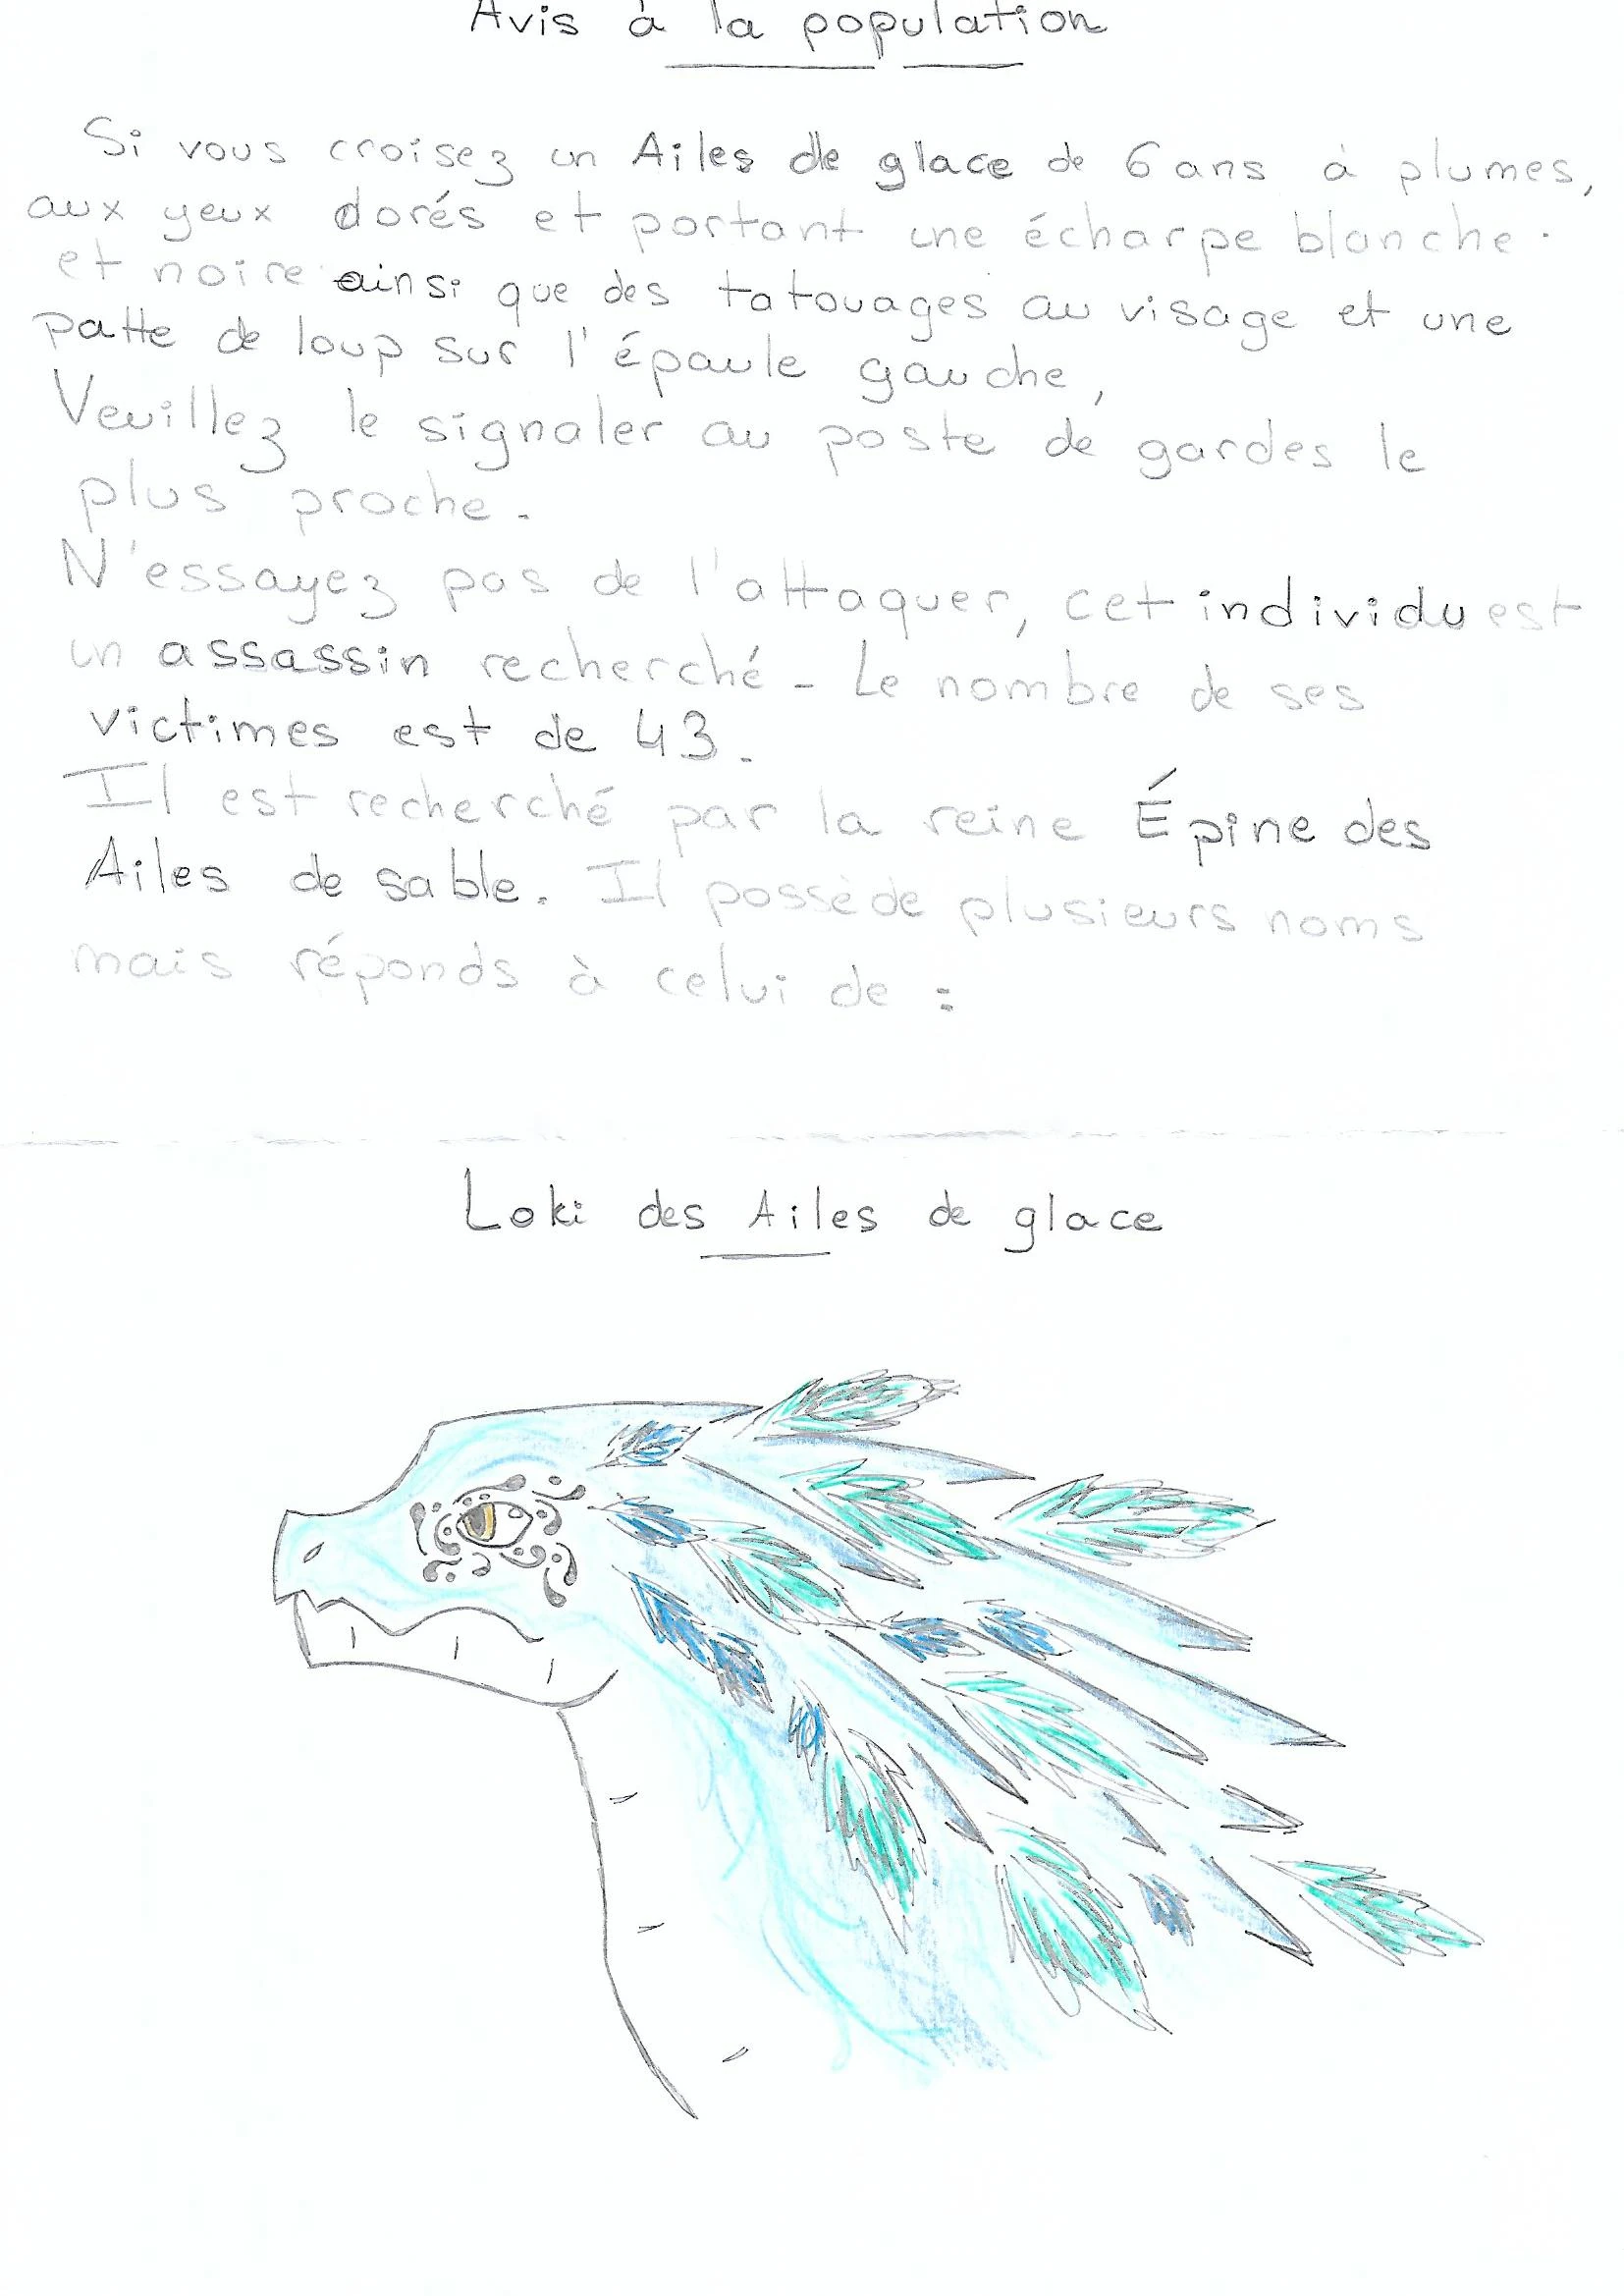 Avis à la population
Si vous croisez un Ailes de glace de 6 ans à plumes,
aux yeux dorés et portant une écharpe blanche
et noire ainsi que des tatouages au visage et une
patte de loup sur l'épaule gauche,
Veuillez le signaler au poste de gardes le
plus proche.
N'essayez pas de l'attaquer, cet individu est
un assassin recherché. Le nombre de ses
victimes est de 43.
Il est recherché par la reine Épine des
Ailes de sable. Il possède plusieurs noms
mais réponds à celui de :
Loki des Ailes de glace